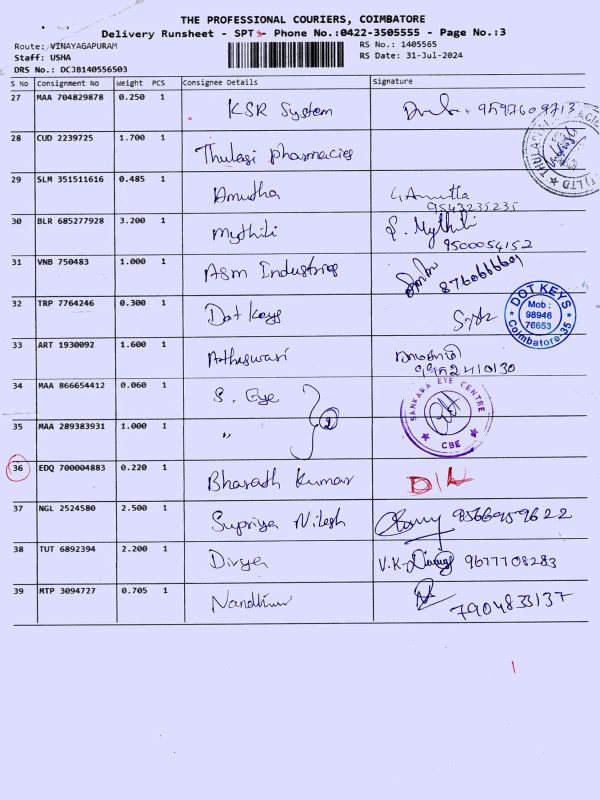 THE PROFESSIONAL COURIERS, COIMBATORE
Delivery Runsheet - SPT - Phone No.:0422-3505555 - Page No.:3
Route: VINAYAGAPURAM
RS No.: 1405565
Staff: USHA
RS Date: 31-Jul-2024
DRS No.: DCJB140556503
S No Consignment No Weight PCS Consignee Details Signature
27 MAA 704829878 0.250 1 KSR System
28 CUD 2239725 1.700 1 Thulasi pharmacies
29 SLM 351511616 0.485 1 Amutha G. Amutha
9543235235
30 BLR 685277928 3.200 1 Mythili P. Mythili
9500054152
31 VNB 750483 1.000 1 ASM Industries 8760666601
32 TRP 7764246 0.300 1 Dot Keys
DOT KEYS
Mob :
98946
76653
Coimbatore-35
33 ART 1930092 1.600 1 Artheswari
9952410130
34 MAA 866654412 0.060 1 S. Eye
SANKARA EYE CENTRE
CBE
35 MAA 289383931 1.000 1 "
36 EDQ 700004883 0.220 1 Bharath Kumar D/L
37 NGL 2524580 2.500 1 Supriya Nilesh 9566959622
38 TUT 6892394 2.200 1 Divya V.K. Divya 9677708283
39 MTP 3094727 0.705 1 Nandhini
7904833137